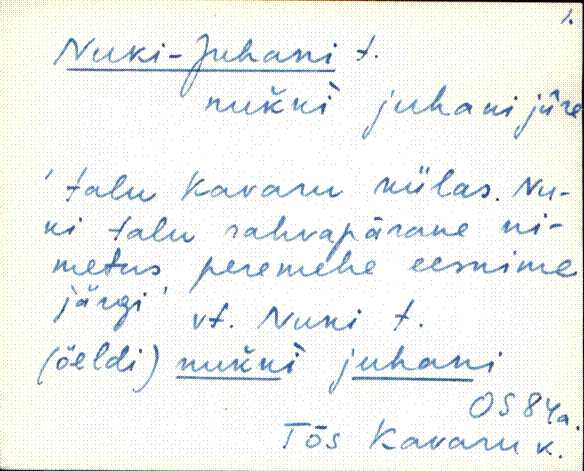 1.
Nuki-Juhani t.
nuk̆ki` juhani jǖre
'talu Kavaru külas. Nu-
ki talu rahvapärane ni-
metus peremehe eesnime
järgi'
vt. Nuki t.
(öeldi) nuk̆ki` juhani
OS 84a.
Tõs Kavaru k.